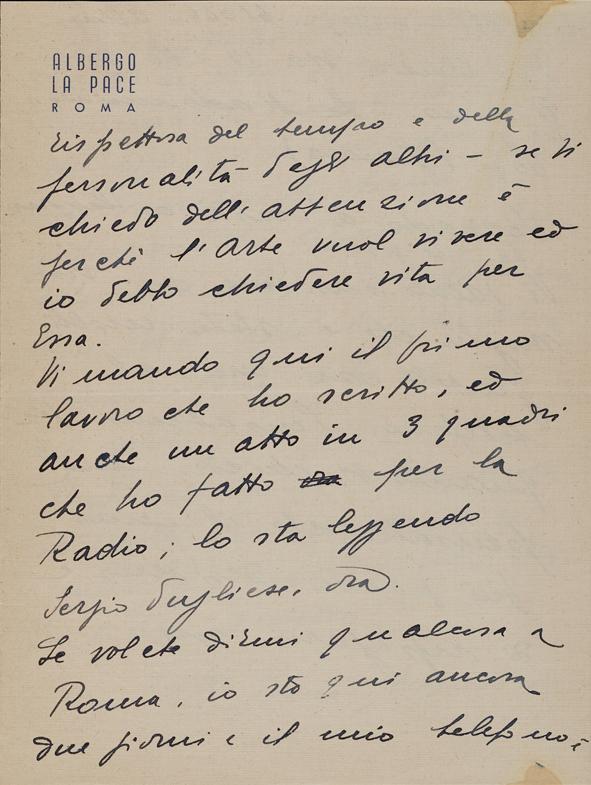 ALBERGO
LA PACE
ROMA
rispettosa del tempo e della
personalità degli altri – se vi
chiedo dell'attenzione è
perchè l'Arte vuol vivere ed
io debbo chiedere vita per
Essa.
Vi mando qui il primo
lavoro che ho scritto, ed
anche un atto in 3 quadri
che ho fatto per la
Radio; lo sta leggendo
Sergio Pugliese, ora.
Se volete dirmi qualcosa a
Roma, io sto qui ancora
due giorni e il mio telefono è